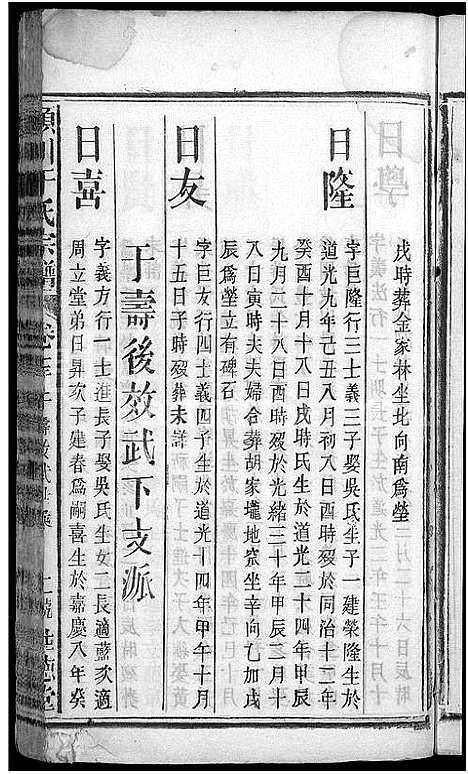 戌時葬金家林坐北向南爲塋
日隆
字巨隆行三士義三子娶吳氏生子一建榮隆生於
道光九年己丑八月初八日酉時歿於同治十二年
癸酉十月十八日戌時氏生於道光二十四年甲辰
九月二十八日酉時歿於光緒三十年甲辰二月十
八日寅時夫夫婦合葬胡家壠地窊坐辛向乙加戌
辰爲塋立有碑石
日友
字巨友行四士義四子生於道光十四年甲午十月
十五日子時歿葬未詳
于壽後效武下支派
日喜
字義方行一士進長子娶吳氏生女二長適藍次適
周立堂弟日昇次子建春爲嗣喜生於嘉慶八年癸
于氏宗譜